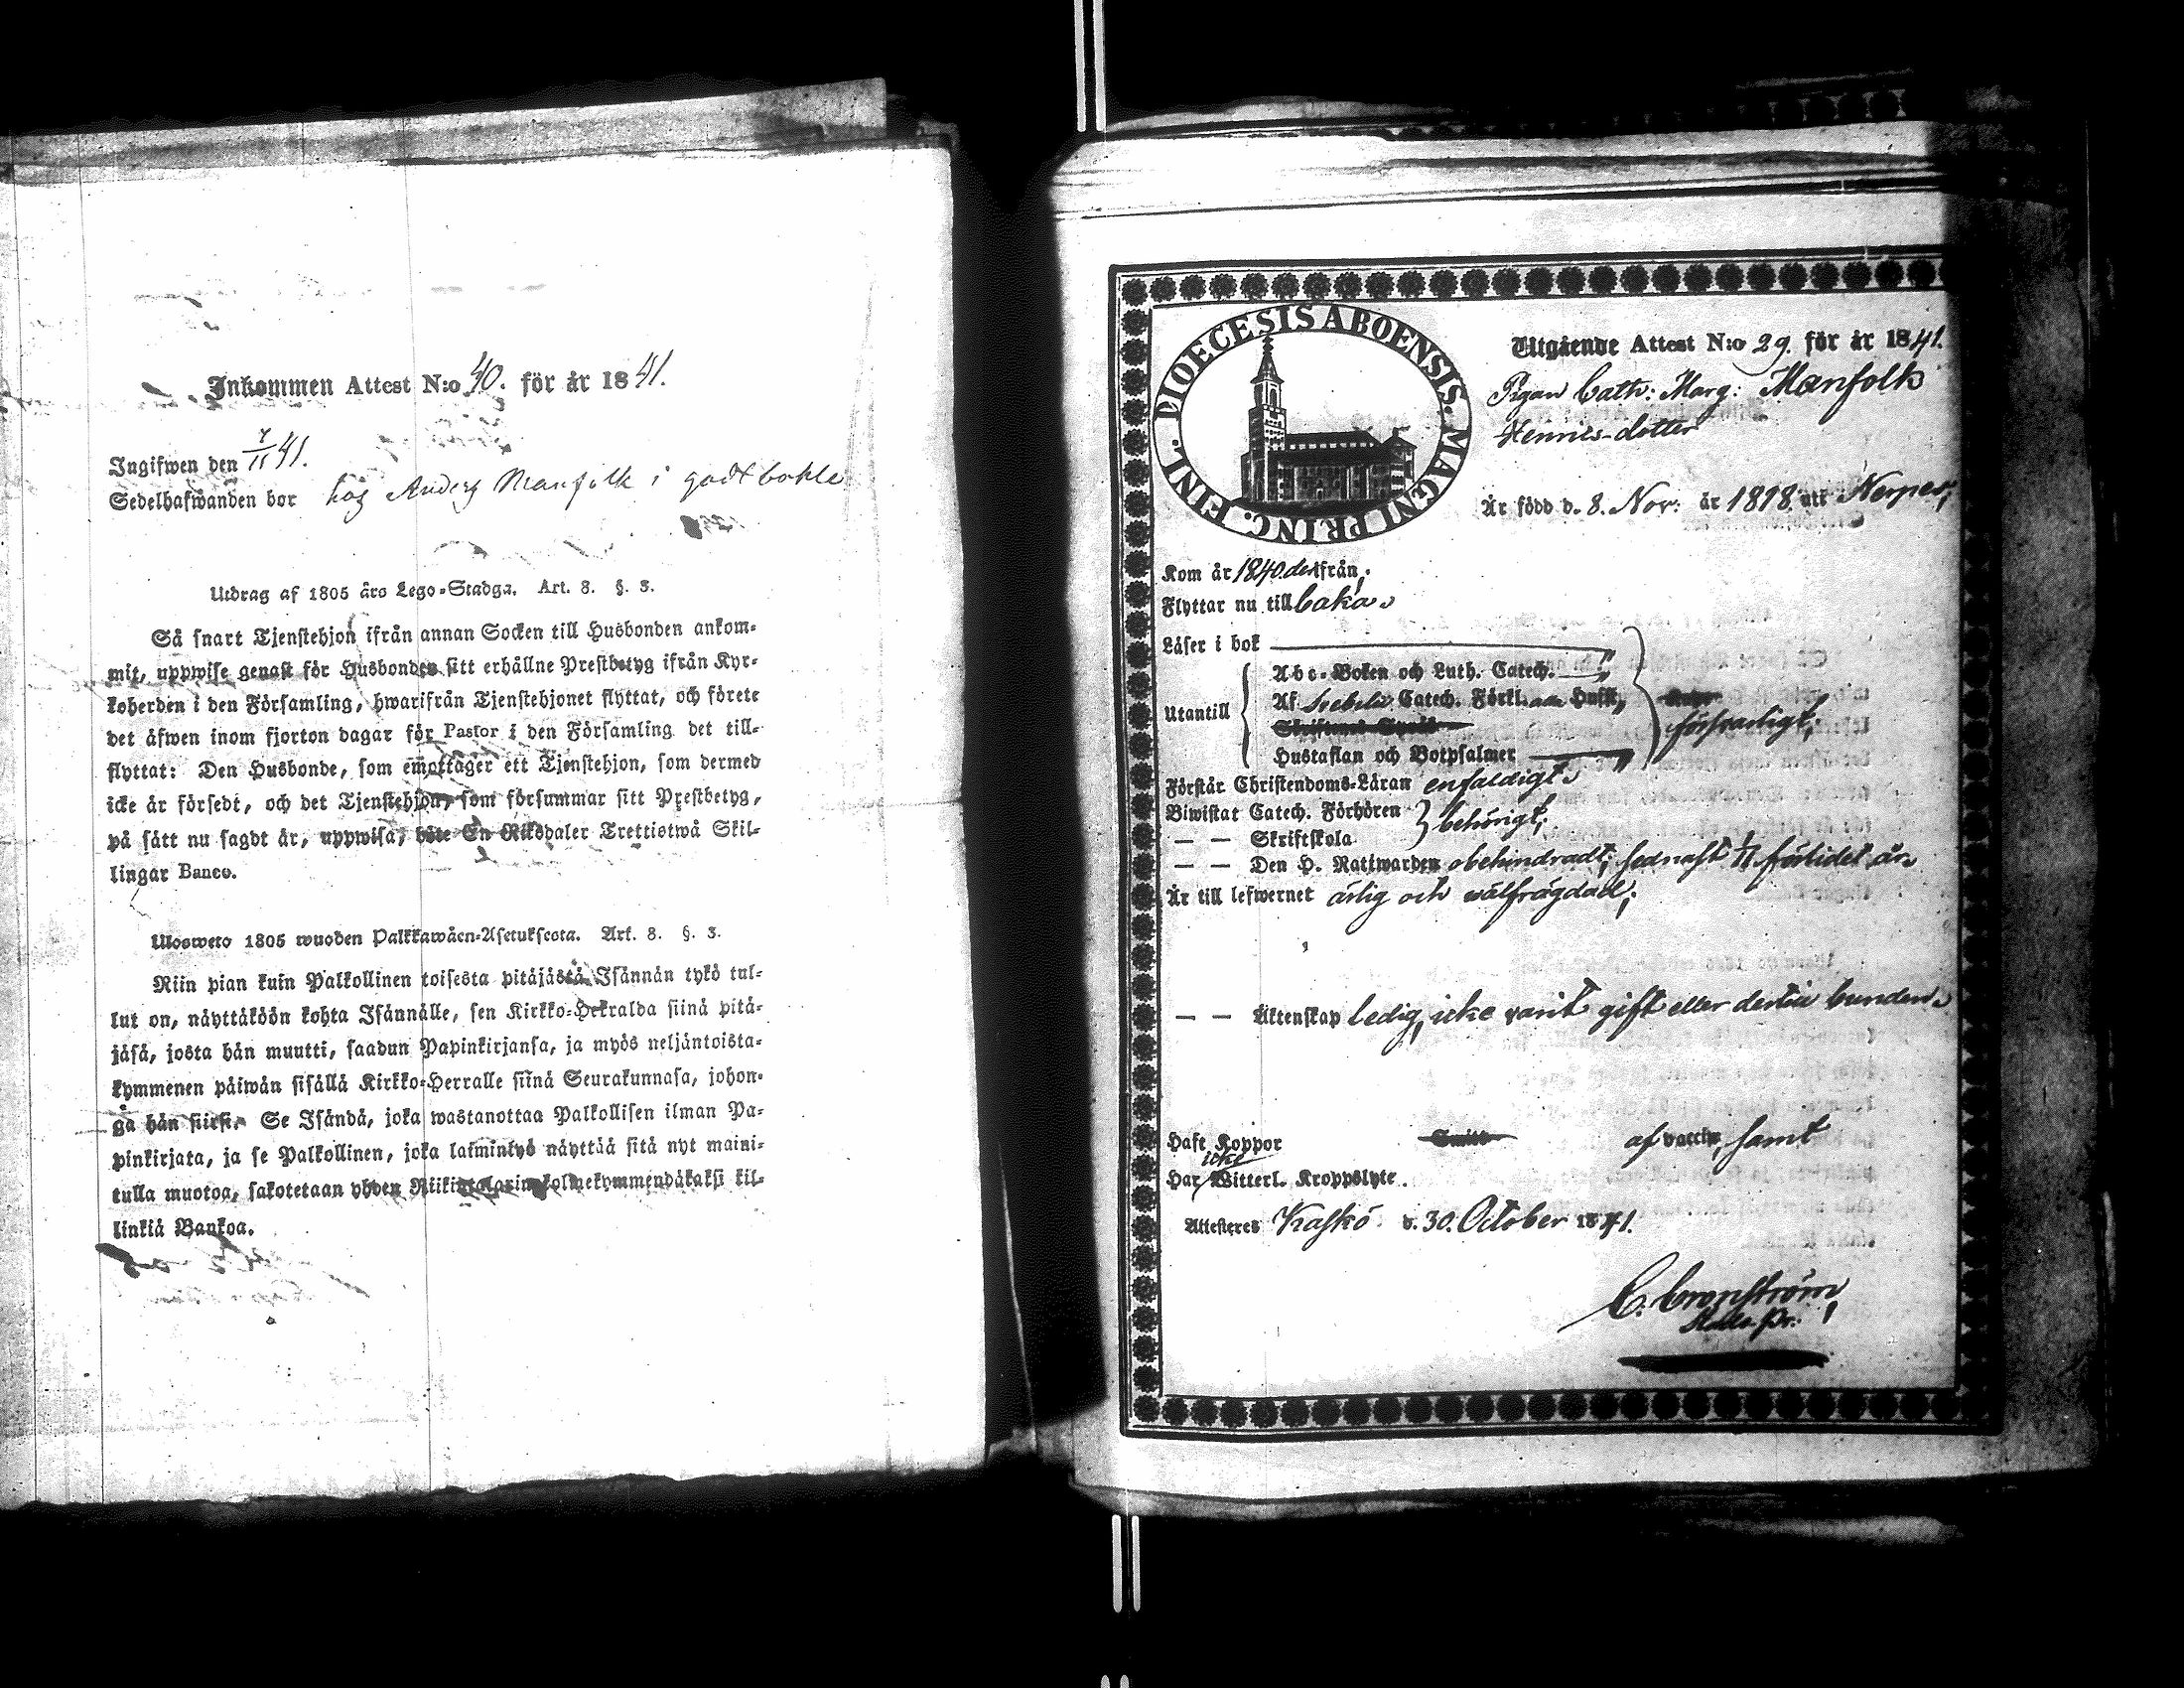 Inkommen Attest N:o 40. för år 1841.
Ingifwen den 7/11 41.
Sedelhafwanden bor hos Anders Manfolk i godtbohle
Utdrag af 1805 års Lego-Stadga. Art. 8. §. 3.
Så snart Tjenstehjon ifrån annan Socken till Husbonden ankom-
mit, uppwise genast för Husbonden sitt erhållne Prestbetyg ifrån Kyr-
koherden i den Församling, hwarifrån Tjenstehjonet flyttat, och förete
det äfwen inom fjorton dagar för Pastor i den Församling det till-
flyttat: Den Husbonde, som emottager ett Tjenstehjon, som dermed
icke är försedt, och det Tjenstehjon, som försummar sitt Prestbetyg,
på sätt nu sagdt är, uppwisa, böte En Riksdaler Trettiotwå Skil-
lingar Banco.
Ulosweto 1805 wuoden Palkkawäen-Asetuksesta. Art. 8. §. 3.
Niin pian kuin Palkollinen toisesta pitäjästä Isännän tykö tul-
lut on, näyttäköön kohta Isännälle, sen Kirkko-Herralda siinä pitä-
jäsä, josta hän muutti, saadun Papinkirjansa, ja myös neljäntoista-
kymmenen päiwän sisällä Kirkko-Herralle siinä Seurakunnasa, johon-
ga hän siirsi. Se Isändä, joka wastanottaa Palkollisen ilman Pa-
pinkirjata, ja se Palkollinen, joka laiminlyö näyttää sitä nyt maini-
tulla muotoa, sakotetaan yhden Riikintalarin kolmekymmendäkaksi kil-
linkiä Bankoa.
DIOECESIS ABOENSIS. MAGNI PRINC. FINL.
Utgående Attest N:o 29. för år 1841.
Pigan Cath: Marg: Manfolk
Henrics-dotter
Är född d. 8. Nov: år 1818. uti Nerpes,
Kom år 1840. derifrån;
Flyttar nu till baka.
Läser i bok
Abc-Boken och Luth. Catech.
Utantill Af Svebelii Catech. Förkl. Hust, försvarligt;
Hustaflan och Botpsalmer
Förstår Christendoms-Läran enfaldigt.
Biwistat Catech. Förhören behörigt;
— — Skriftskola
— — Den H. Nattwarden obehindradt; sednast förlidet år.
Är till lefwernet ärlig och wälfrägdad;
— — Äktenskap ledig, icke varit gift eller dertill bunden.
Haft Koppor af vaccin, samt
icke
Har Witterl. Kroppslyte.
Attesteres Kaskö d. 30. October 1841.
C. Cronström,